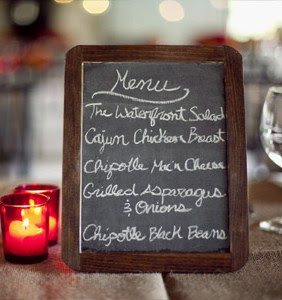 Menu
The Waterfront Salad
Cajun Chicken Breast
Chipotle Mac'n Cheese
Grilled Asparagus
& Onions
Chipotle Black Beans